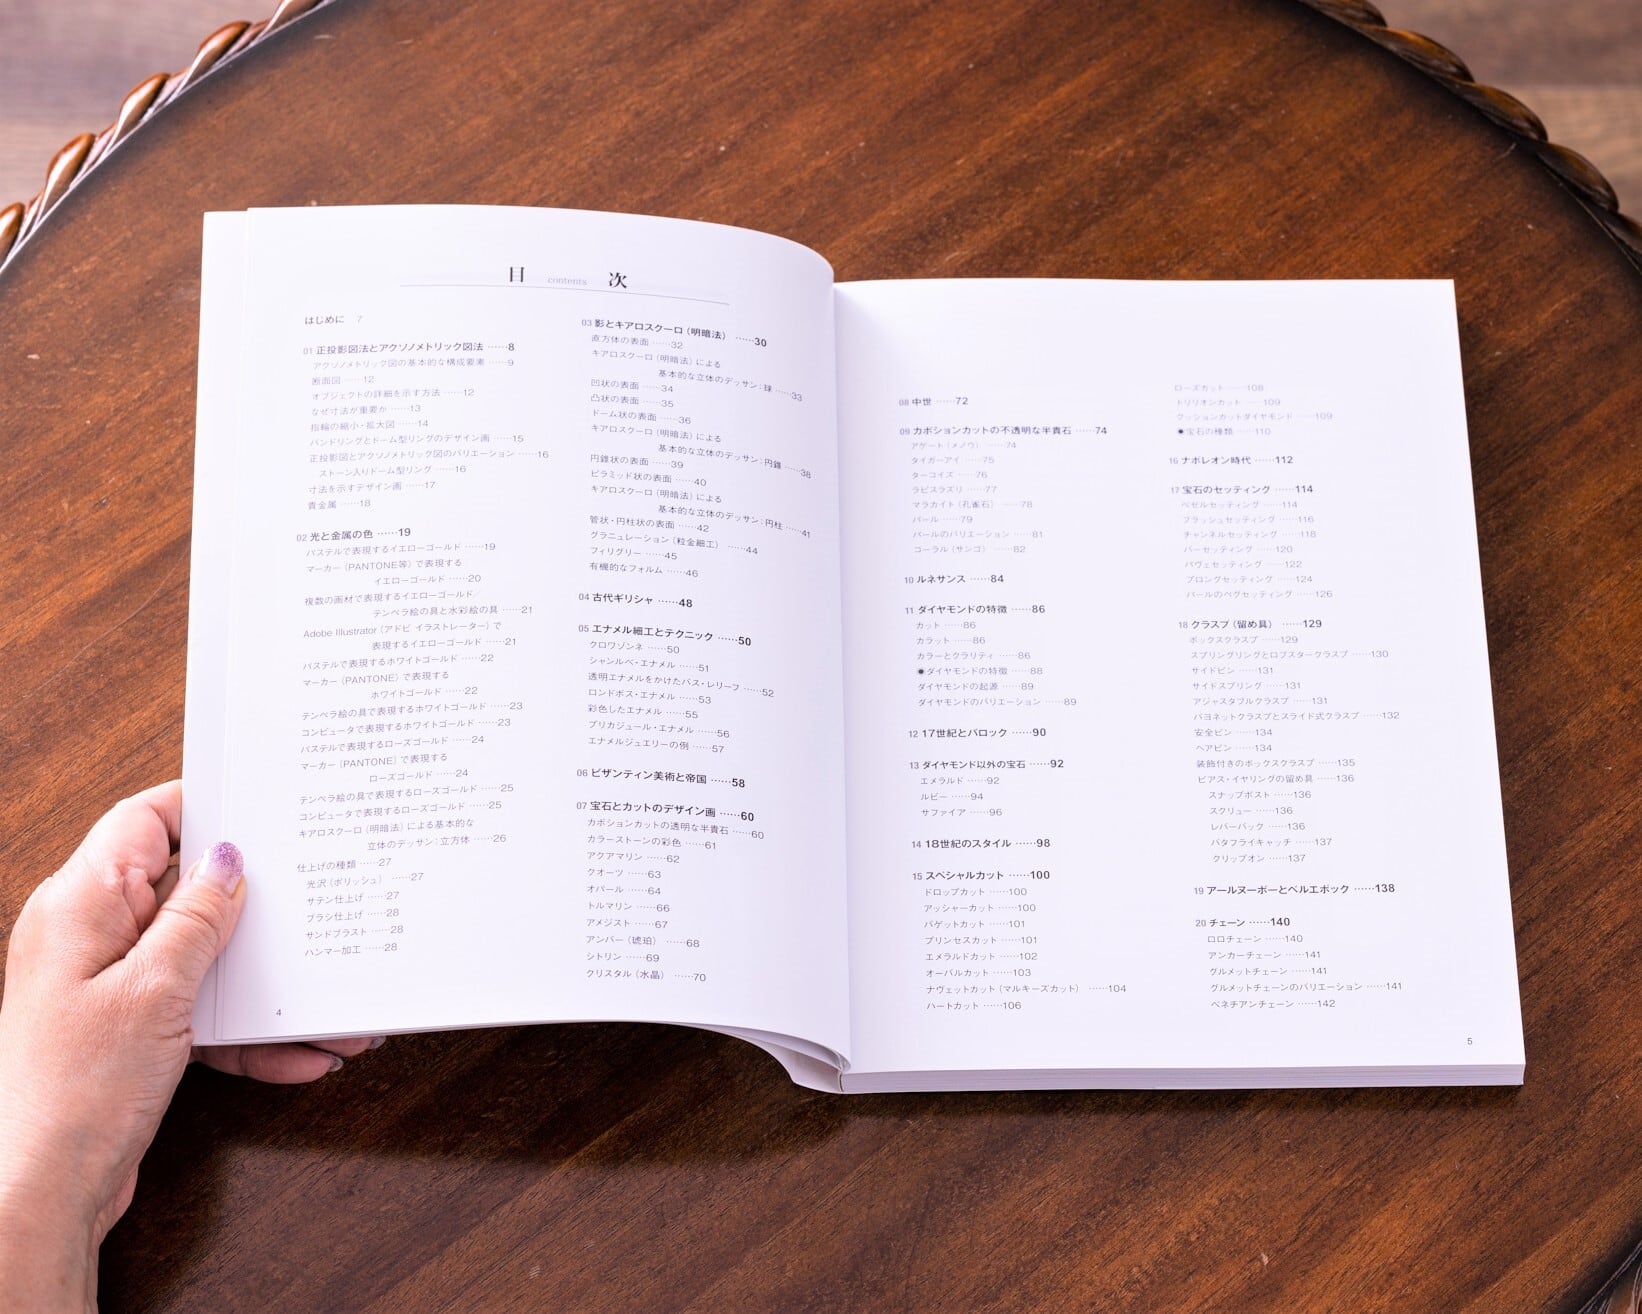 目 contents 次
はじめに 7
01 正投影図法とアクソノメトリック図法 ……8
アクソノメトリック図の基本的な構成要素 ……9
断面図 ……12
オブジェクトの詳細を示す方法 ……12
なぜ寸法が重要か ……13
指輪の縮小・拡大図 ……14
バンドリングとドーム型リングのデザイン画 ……15
正投影図とアクソノメトリック図のバリエーション ……16
ストーン入りドーム型リング ……16
寸法を示すデザイン画 ……17
貴金属 ……18
02 光と金属の色 ……19
パステルで表現するイエローゴールド ……19
マーカー（PANTONE等）で表現する
イエローゴールド ……20
複数の画材で表現するイエローゴールド／
テンペラ絵の具と水彩絵の具 ……21
Adobe Illustrator（アドビ イラストレーター）で
表現するイエローゴールド ……21
パステルで表現するホワイトゴールド ……22
マーカー（PANTONE）で表現する
ホワイトゴールド ……22
テンペラ絵の具で表現するホワイトゴールド ……23
コンピュータで表現するホワイトゴールド ……23
パステルで表現するローズゴールド ……24
マーカー（PANTONE）で表現する
ローズゴールド ……24
テンペラ絵の具で表現するローズゴールド ……25
コンピュータで表現するローズゴールド ……25
キアロスクーロ（明暗法）による基本的な
立体のデッサン：立方体 ……26
仕上げの種類 ……27
光沢（ポリッシュ） ……27
サテン仕上げ ……27
ブラシ仕上げ ……28
サンドブラスト ……28
ハンマー加工 ……28
4
03 影とキアロスクーロ（明暗法） ……30
直方体の表面 ……32
キアロスクーロ（明暗法）による
基本的な立体のデッサン：球 ……33
凹状の表面 ……34
凸状の表面 ……35
ドーム状の表面 ……36
キアロスクーロ（明暗法）による
基本的な立体のデッサン：円錐 ……38
円錐状の表面 ……39
ピラミッド状の表面 ……40
キアロスクーロ（明暗法）による
基本的な立体のデッサン：円柱 ……41
管状・円柱状の表面 ……42
グラニュレーション（粒金細工） ……44
フィリグリー ……45
有機的なフォルム ……46
04 古代ギリシャ ……48
05 エナメル細工とテクニック ……50
クロワゾンネ ……50
シャンルベ・エナメル ……51
透明エナメルをかけたバス・レリーフ ……52
ロンドボス・エナメル ……53
彩色したエナメル ……55
プリカジュール・エナメル ……56
エナメルジュエリーの例 ……57
06 ビザンティン美術と帝国 ……58
07 宝石とカットのデザイン画 ……60
カボションカットの透明な半貴石 ……60
カラーストーンの彩色 ……61
アクアマリン ……62
クオーツ ……63
オパール ……64
トルマリン ……66
アメジスト ……67
アンバー（琥珀） ……68
シトリン ……69
クリスタル（水晶） ……70
08 中世 ……72
09 カボションカットの不透明な半貴石 ……74
アゲート（メノウ） ……74
タイガーアイ ……75
ターコイズ ……76
ラピスラズリ ……77
マラカイト（孔雀石） ……78
パール ……79
パールのバリエーション ……81
コーラル（サンゴ） ……82
10 ルネサンス ……84
11 ダイヤモンドの特徴 ……86
カット ……86
カラット ……86
カラーとクラリティ ……86
◉ダイヤモンドの特徴 ……88
ダイヤモンドの起源 ……89
ダイヤモンドのバリエーション ……89
12 17世紀とバロック ……90
13 ダイヤモンド以外の宝石 ……92
エメラルド ……92
ルビー ……94
サファイア ……96
14 18世紀のスタイル ……98
15 スペシャルカット ……100
ドロップカット ……100
アッシャーカット ……100
バゲットカット ……101
プリンセスカット ……101
エメラルドカット ……102
オーバルカット ……103
ナヴェットカット（マルキーズカット） ……104
ハートカット ……106
ローズカット ……108
トリリオンカット ……109
クッションカットダイヤモンド ……109
◉宝石の種類 ……110
16 ナポレオン時代 ……112
17 宝石のセッティング ……114
ベゼルセッティング ……114
フラッシュセッティング ……116
チャンネルセッティング ……118
バーセッティング ……120
パヴェセッティング ……122
プロングセッティング ……124
パールのペグセッティング ……126
18 クラスプ（留め具） ……129
ボックスクラスプ ……129
スプリングリングとロブスタークラスプ ……130
サイドピン ……131
サイドスプリング ……131
アジャスタブルクラスプ ……131
バヨネットクラスプとスライド式クラスプ ……132
安全ピン ……134
ヘアピン ……134
装飾付きのボックスクラスプ ……135
ピアス・イヤリングの留め具 ……136
スナップポスト ……136
スクリュー ……136
レバーバック ……136
バタフライキャッチ ……137
クリップオン ……137
19 アールヌーボーとベルエポック ……138
20 チェーン ……140
ロロチェーン ……140
アンカーチェーン ……141
グルメットチェーン ……141
グルメットチェーンのバリエーション ……141
ベネチアンチェーン ……142
5